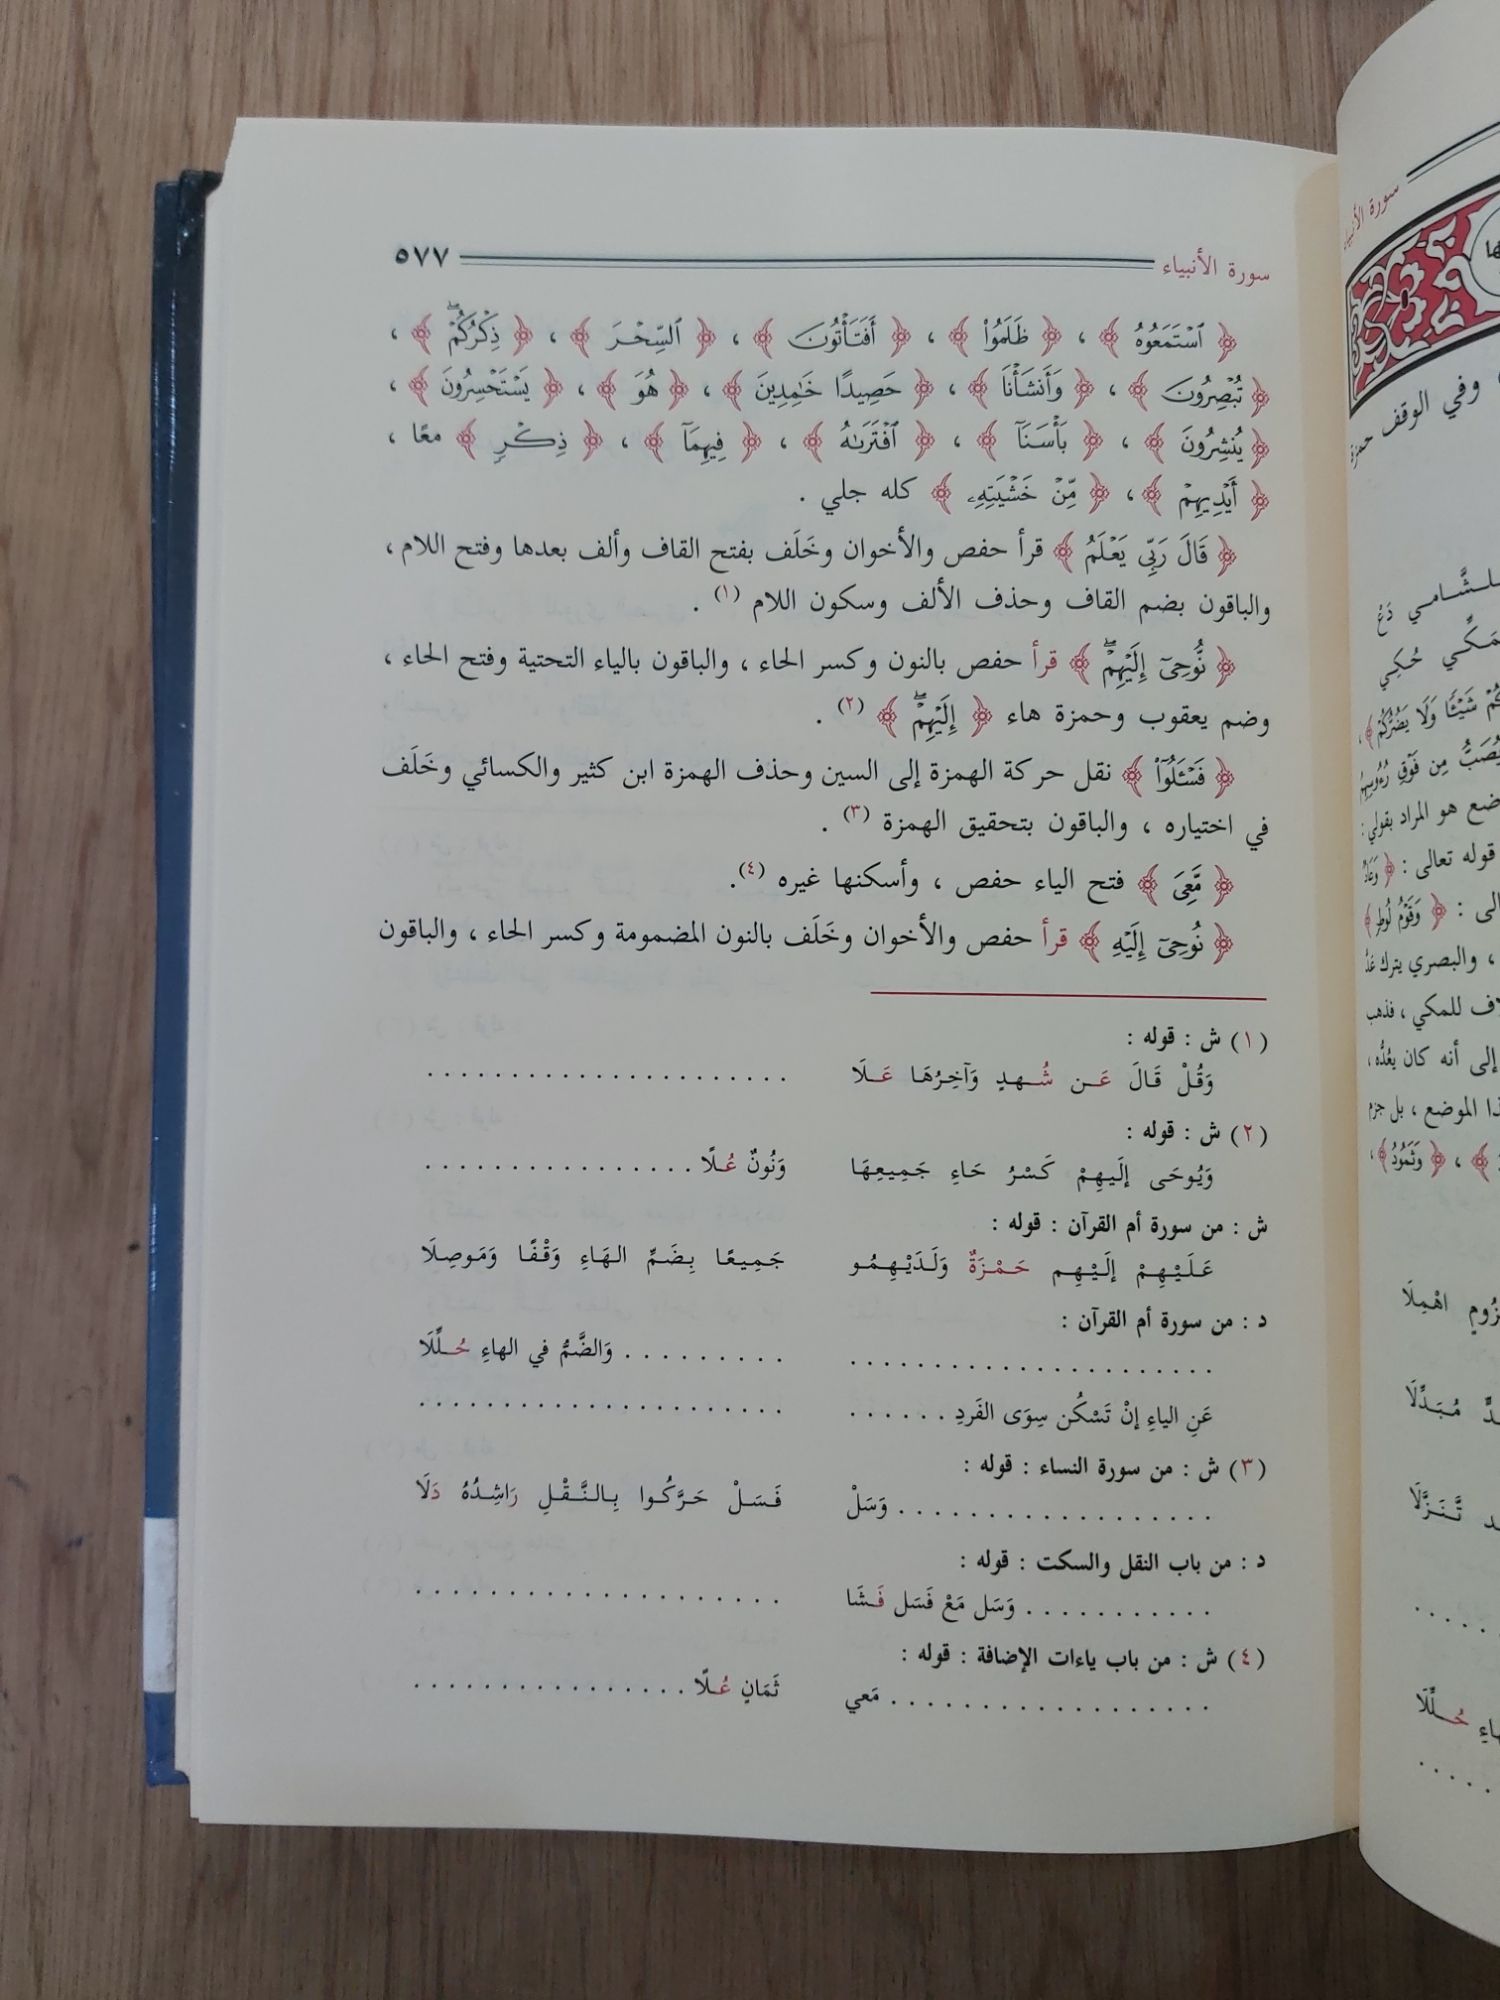 سورة الأنبياء ٥٧٧
﴿ ٱسْتَمَعُوهُ ﴾ ، ﴿ ظَلَمُوا۟ ﴾ ، ﴿ أَفَتَأْتُونَ ﴾ ، ﴿ ٱلسِّحْرَ ﴾ ، ﴿ ذِكْرُكُمْ ۖ ﴾ ،
﴿ تُبْصِرُونَ ﴾ ، ﴿ وَأَنشَأْنَا ﴾ ، ﴿ حَصِيدًا خَٰمِدِينَ ﴾ ، ﴿ هُوَ ﴾ ، ﴿ يَسْتَحْسِرُونَ ﴾ ،
﴿ يُنشِرُونَ ﴾ ، ﴿ بَأْسَنَآ ﴾ ، ﴿ ٱفْتَرَىٰهُ ﴾ ، ﴿ فِيهِمَآ ﴾ ، ﴿ ذِكْرٍ ﴾ معًا ،
﴿ أَيْدِيهِمْ ﴾ ، ﴿ مِّنْ خَشْيَتِهِۦ ﴾ كله جلي .
﴿ قَالَ رَبِّى يَعْلَمُ ﴾ قرأ حفص والأخوان وخَلَف بفتح القاف وألف بعدها وفتح اللام ،
والباقون بضم القاف وحذف الألف وسكون اللام (١) .
﴿ نُّوحِىٓ إِلَيْهِمْ ۖ ﴾ قرأ حفص بالنون وكسر الحاء ، والباقون بالياء التحتية وفتح الحاء ،
وضم يعقوب وحمزة هاء ﴿ إِلَيْهِمْ ۖ ﴾ (٢) .
﴿ فَسْـَٔلُوٓا۟ ﴾ نقل حركة الهمزة إلى السين وحذف الهمزة ابن كثير والكسائي وخَلَف
في اختياره ، والباقون بتحقيق الهمزة (٣) .
﴿ مَّعِىَ ﴾ فتح الياء حفص ، وأسكنها غيره (٤).
﴿ نُوحِىٓ إِلَيْهِ ﴾ قرأ حفص والأخوان وخَلَف بالنون المضمومة وكسر الحاء ، والباقون
(١) ش : قوله :
وَقُلْ قَالَ عَن شُهدٍ وَآخِرُهَا عَلَا . . . . . . . . . . . . . . . . . . . . . .
(٢) ش : قوله :
وَيُوحَى إلَيهِمْ كَسْرُ حَاءِ جَمِيعِهَا وَنُونٌ عُلًا . . . . . . . . . . . . . . . .
ش : من سورة أم القرآن : قوله :
عَلَيْهِمْ إلَيْهِم حَمْزَةٌ وَلَدَيْهِمُو جَمِيعًا بِضَمِّ الهَاءِ وَقْفًا وَمَوصِلَا
د : من سورة أم القرآن :
. . . . . . . . . . . . . . . . . . . . . . . . . . . . . . . وَالضَّمُّ في الهاءِ حُلِّلَا
عَنِ الياءِ إنْ تَسْكُن سِوَى الفَردِ . . . . . . . . . . . . . . . . . . . . . . . . . . . .
(٣) ش : من سورة النساء : قوله :
. . . . . . . . . . . . . . . . . . . وَسَلْ فَسَلْ حَرَّكُوا بِالنَّقْلِ رَاشِدُهُ دَلَا
د : من باب النقل والسكت : قوله :
. . . . . . . . . . . وَسَل مَعْ فَسَل فَشَا . . . . . . . . . . . . . . . . . . . . . .
(٤) ش : من باب ياءات الإضافة : قوله :
. . . . . . . . . . . . . . . . . . . مَعي ثَمَانٍ عُلًا . . . . . . . . . . . . . . . .
سورة الأنبياء
وفي الوقف حمزة
دَعْ
حُكِي
شَيْـًٔا وَلَا يَضُرُّكُمْ ﴾ ،
يُصَبُّ مِن فَوْقِ رُءُوسِهِمُ
هو المراد بقولي :
قوله تعالى :
﴿ وَقَوْمُ لُوطٍ ﴾
، والبصري يترك عَدَّ
للمكي ، فذهب
إلى أنه كان يعُدُّه ،
الموضع ، بل جزم
﴾ ، ﴿ وَثَمُودُ ﴾ ،
اهْمِلَا
مُبَدِّلَا
تَنَزَّلَا
حُلِّلَا